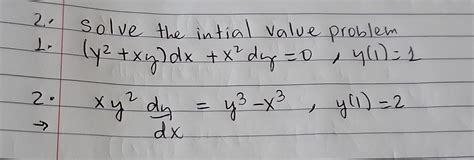 2. Solve the intial value problem
1. (y² + xy)dx + x² dy = 0 , y(1) = 1
2. xy² dy/dx = y³ - x³ , y(1) = 2
→